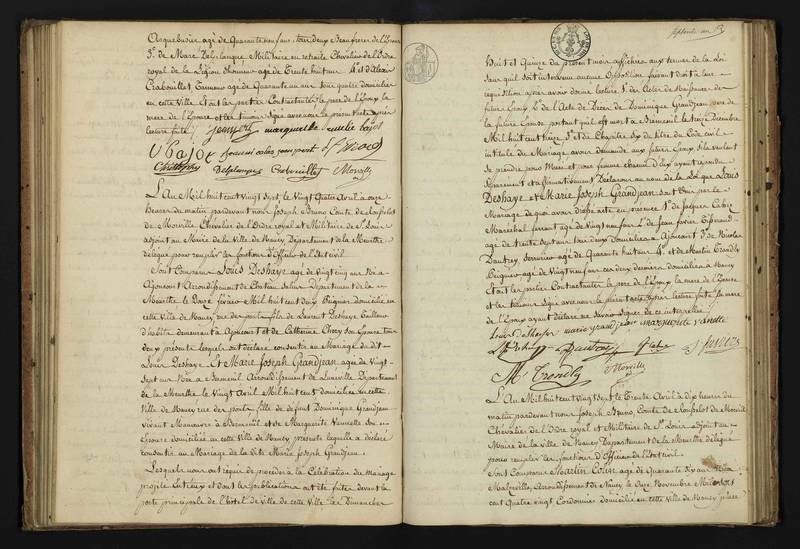 agé de Quarante neuf ans, tous deux Beaufreres de l'Epoux
3°. de Marc Delplanque Militaire en retraite Chevalier de l'Ordre
royal de la Légion d'honneur agé de Trente huit ans 4°. et d'
Crabouillet agé de Quarante un ans tous quatre domiciliés
en cette Ville Et ont les parties Contractantes le pere de l'Epoux la
mere de l'Epouse et les témoins signé avec nous le présent acte après
lecture faite
Delplanque Crabouillet Morville
L'An Mil huit cent Vingt Sept, le Vingt Quatre Avril à onze
heures du matin pardevant nous Joseph Bruno Comte de
de Morville, Chevalier de l'Ordre royal et Militaire de St. Louis
adjoint au Maire de la Ville de Nancy Département de la Meurthe
délégué pour remplir les fonctions d'Officier de l'Etat civil
Sont Comparus Louis Deshaye agé de Vingt cinq ans Né à
Ajoncourt Arrondissement de Chateau Salins Département de la
Meurthe le Onze février Mil huit cent deux Beignier domicilié en
cette Ville de Nancy rue des ponts fils de Laurent Deshaye Tailleur
d'habits demeurant à Ajoncourt et de Catherine Chery son Epouse tous
deux présents lesquels ont déclaré consentir au Mariage du dit
Louis Deshaye. Et Marie Joseph Grandjean, agée de Vingt
Sept ans Née à Bremenil Arrondissement de Luneville Département
de la Meurthe le Vingt Avril Mil huit cent domiciliée en cette
Ville de Nancy rue des ponts fille de defunt Dominique Grandjean
vivant Manœuvre à Bremenil et de Marguerite Vannette son
Epouse domiciliée en cette Ville de Nancy présente laquelle a déclaré
consentir au Mariage de la dite Marie Joseph Grandjean.
Lesquels nous ont requis de procéder à la Célébration du mariage
projeté Entr'eux et dont les publications ont été faites devant la
porte principale de l'Hôtel de Ville de cette Ville les Dimanches
huit et Quinze du présent mois affichées aux termes de la Loi
sans qu'il soit intervenu aucune Opposition faisant droit à leur
réquisition après avoir donné lecture 1°. des Actes de Naissance des
futurs Epoux 2°. de l'Acte de Décès de Dominique Grandjean pere de
la future Epouse portant qu'il est mort à Bremenil le treize Décembre
Mil huit cent treize 3°. et du Chapitre six du titre du Code civil
intitulé du Mariage, avons demandé aux futurs Epoux s'ils veulent
se prendre pour Mari et pour femme chacun d'eux ayant répondu
séparément et affirmativement Déclarons au nom de la Loi que Louis
Deshaye et Marie Joseph Grandjean sont Unis par le
Mariage de quoi avons dressé acte en présence 1°. de Jacques
Maréchal ferrant agé de Vingt neuf ans 2°. de Jean fevrier Tisserand
agé de trente sept ans tous deux domiciliés à Ajoncourt 3°. de Nicolas
Dautrey Serrurier agé de Quarante huit ans 4°. et de Martin Trondly
Beignier agé de Vingt neuf ans ces deux derniers domiciliés à Nancy
Et ont les parties Contractantes le pere de l'Epoux la mere de l'Epouse
et les témoins signé avec nous le présent acte après lecture faite la mere
de l'Epoux ayant déclaré ne savoir signer de ce interpellée
marie grand jean marguerite vanette
Dautrey
M. Trondly Morville
L'An Mil huit cent Vingt Sept le Trente Avril à dix heures du
matin pardevant nous Joseph Bruno, Comte de de Morville
Chevalier de l'Ordre royal et Militaire de St. Louis adjoint au
Maire de la Ville de Nancy Département de la Meurthe délégué
pour remplir les fonctions d'Officier de l'Etat civil.
Sont Comparus Martin Colin agé de Quarante six ans Né à
Malzeville, Arrondissement de Nancy le Onze Novembre Mil sept
cent Quatre vingt Cordonnier domicilié en cette Ville de Nancy place